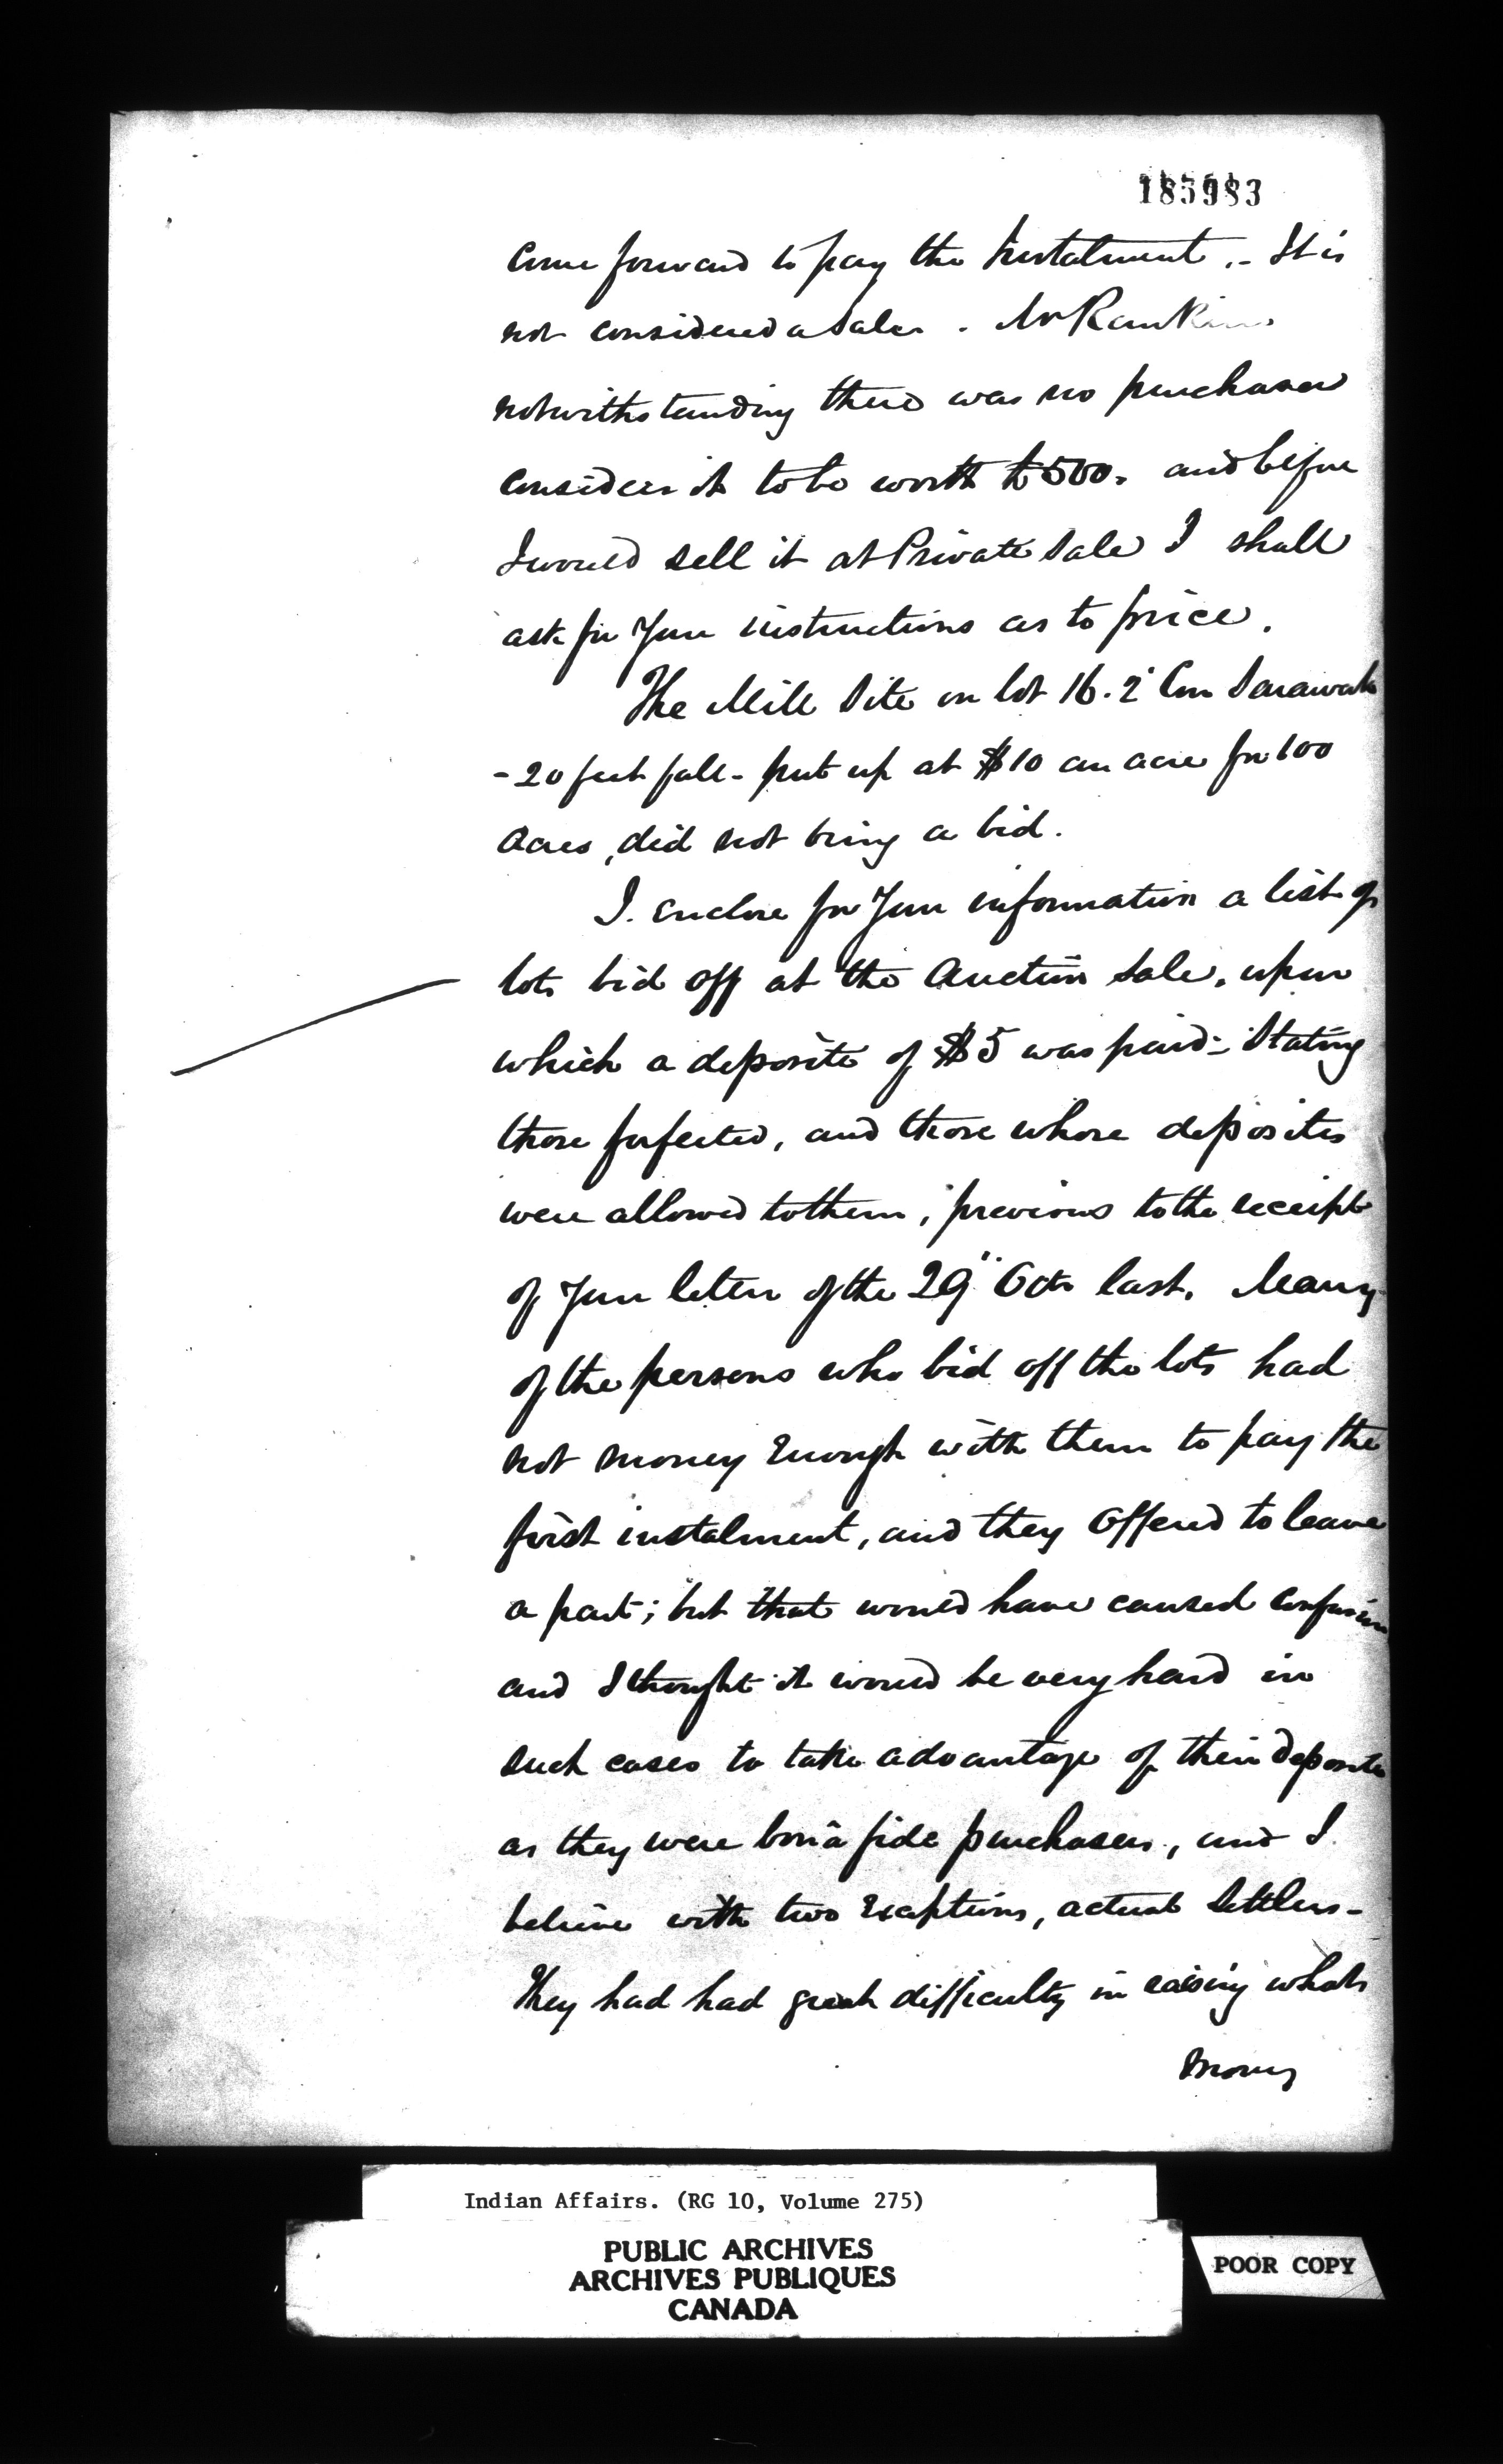 185983
come forward to pay the Instalment .- It is
not considered a sale . Mr Rankin
notwithstanding there was no purchaser
considers it to be worth £500. and before
I would sell it at Private Sale I shall
ask for your instructions as to price.
The Mill Site on lot 16. 2d Con Sarawak
- 20 feet fall - put up at $10 an acre for 100
Acres, did not bring a bid.
I enclose for your information a list of
lots bid off at the Auction Sale, upon
which a deposite of $5 was paid - Stating
those forfeited, and those whose deposites
were allowed to them, previous to the receipt
of your letter of the 29" Octr last. Many
of the persons who bid off the lots had
not money Enough with them to pay the
first instalment, and they Offered to leave
a part; but that would have caused confusion
and I thought it would be very hard in
such cases to take advantage of their deposites
as they were bonâ fide purchasers, and I
believe with two Exceptions, actual Settlers -
They had had great difficulty in raising what
money
Indian Affairs. (RG 10, Volume 275)
PUBLIC ARCHIVES
ARCHIVES PUBLIQUES
CANADA
POOR COPY